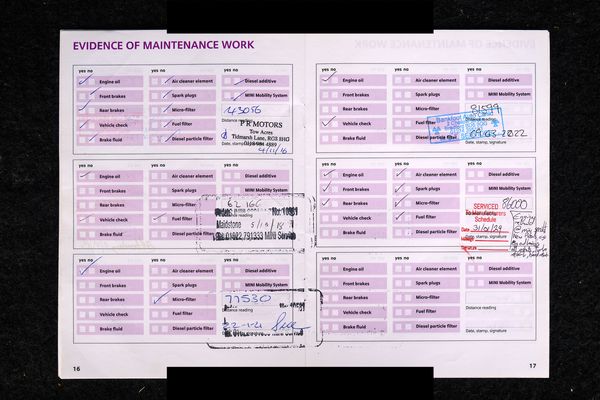 EVIDENCE OF MAINTENANCE WORK
yes no
Engine oil
Front brakes
Rear brakes
Vehicle check
Brake fluid
yes no
Air cleaner element
Spark plugs
Micro-filter
Fuel filter
Diesel particle filter
yes no
Diesel additive
MINI Mobility System
43056
Distance reading
P R MOTORS
Tow Acres
Tidmarsh Lane, RG8 8HG
0118 984 4889
Date, stamp
yes no
Engine oil
Front brakes
Rear brakes
Vehicle check
Brake fluid
yes no
Air cleaner element
Spark plugs
Micro-filter
Fuel filter
Diesel particle filter
yes no
Diesel additive
MINI Mobility System
reading
Maidstone
791333 MINI Service
yes no
Engine oil
Front brakes
Rear brakes
Vehicle check
Brake fluid
yes no
Air cleaner element
Spark plugs
Micro-filter
Fuel filter
Diesel particle filter
yes no
Diesel additive
MINI Mobility System
77530
Distance reading
16
yes no
Engine oil
Front brakes
Rear brakes
Vehicle check
Brake fluid
yes no
Air cleaner element
Spark plugs
Micro-filter
Fuel filter
Diesel particle filter
yes no
Diesel additive
MINI Mobility System
81599
09.03.2022
Date, stamp, signature
yes no
Engine oil
Front brakes
Rear brakes
Vehicle check
Brake fluid
yes no
Air cleaner element
Spark plugs
Micro-filter
Fuel filter
Diesel particle filter
yes no
Diesel additive
MINI Mobility System
SERVICED
To Manufacturers
Schedule
Date
stamp, signature
Signature
yes no
Engine oil
Front brakes
Rear brakes
Vehicle check
Brake fluid
yes no
Air cleaner element
Spark plugs
Micro-filter
Fuel filter
Diesel particle filter
yes no
Diesel additive
MINI Mobility System
Distance reading
Date, stamp, signature
17